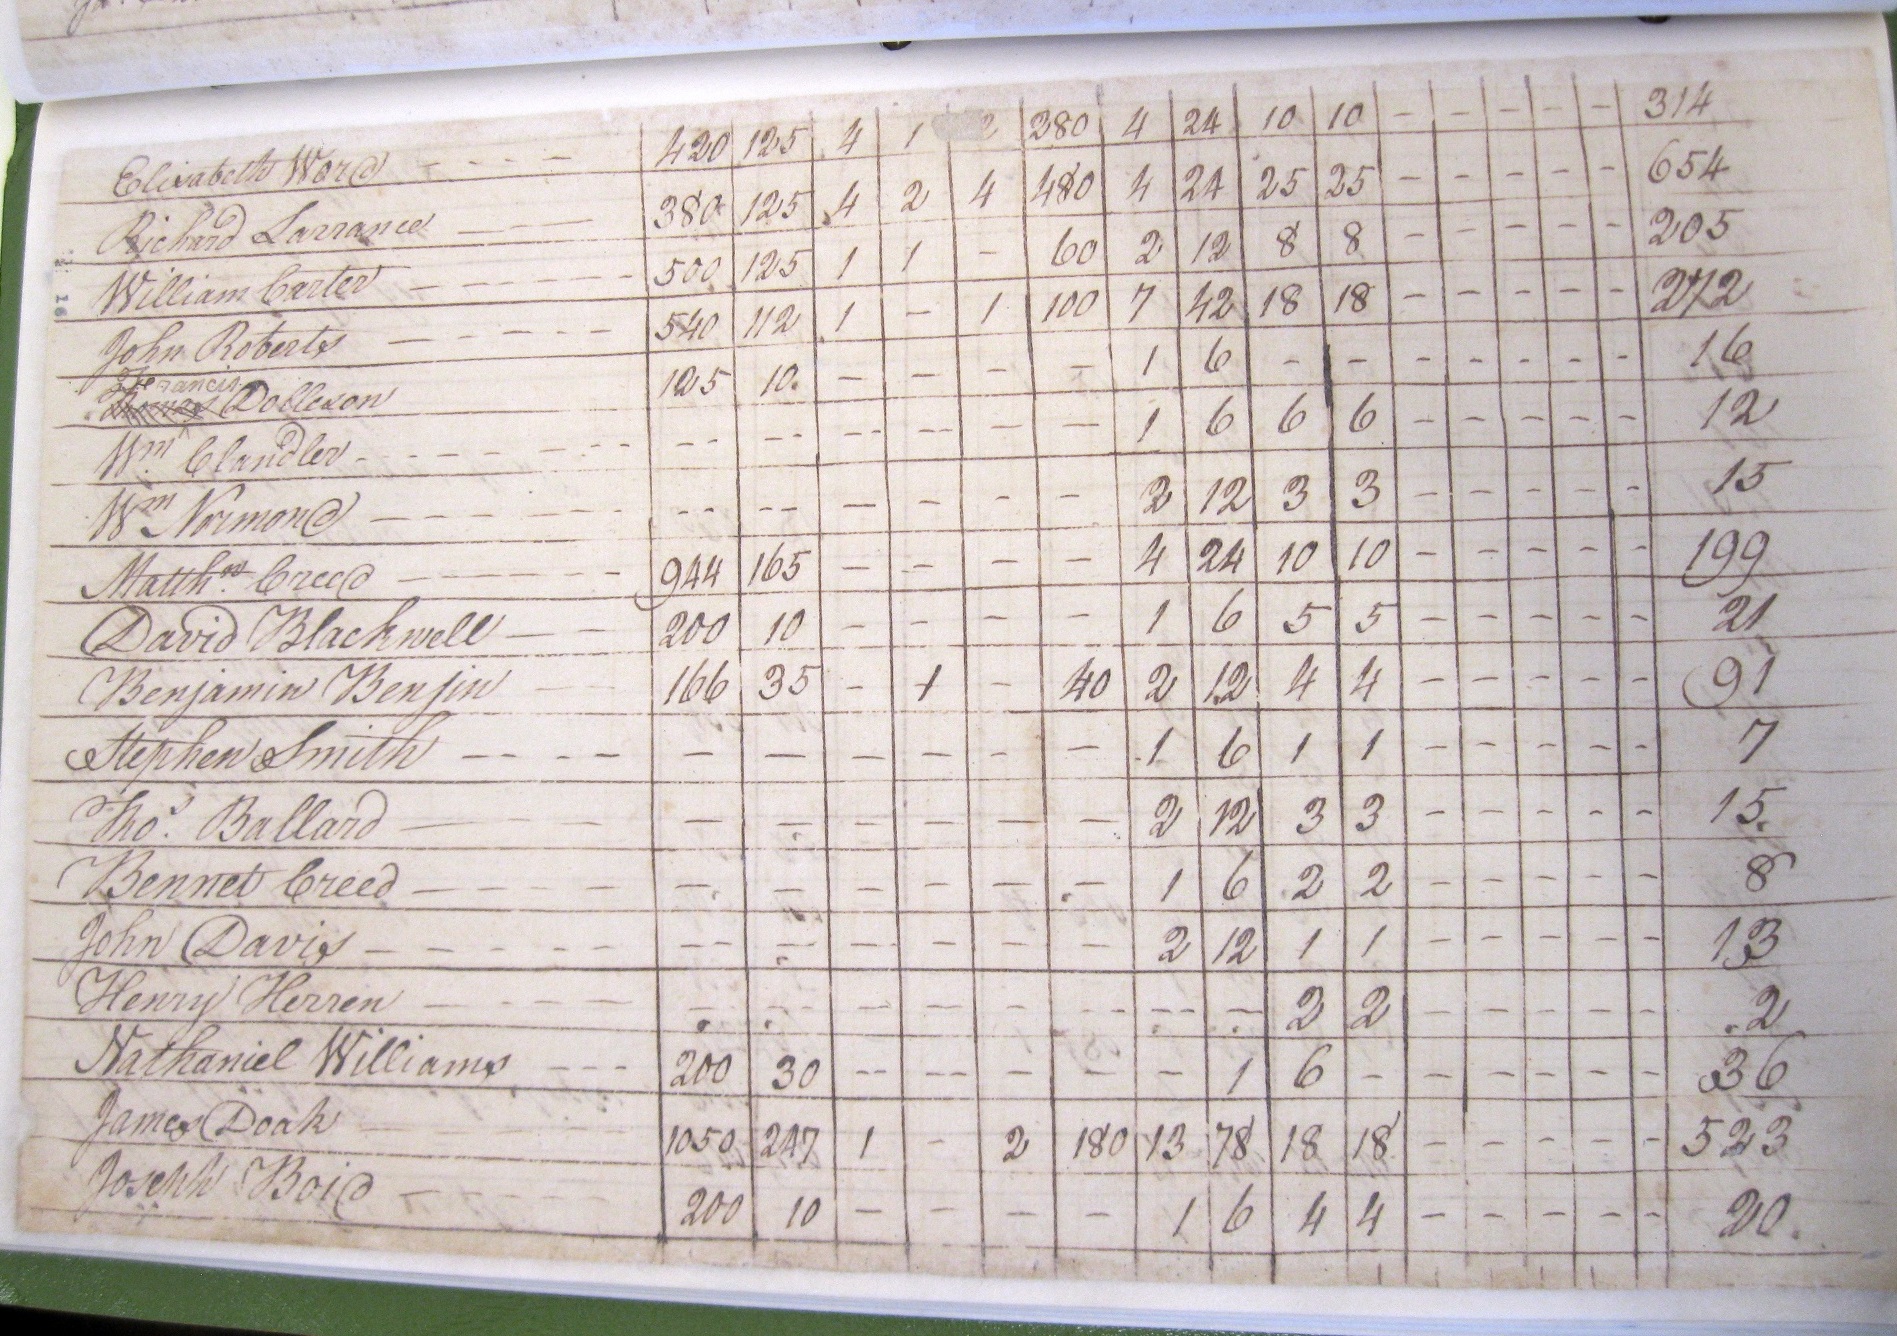 Elisabeth Word - - - - 420 125 4 1 2 280 4 24 10 10 - - - - - 314
Richard Larrance - - - 380 125 4 2 4 480 4 24 25 25 - - - - - 654
William Carter - - - - 500 125 1 1 - 60 2 12 8 8 - - - - - 205
John Roberts - - - - - 540 112 1 - 1 100 7 42 18 18 - - - - - 272
Francis
Dolleson 125 10. - - - - 1 6 - - - - - - - 16
Wm. Clandler - - - - - - - - - - - 1 6 6 6 - - - - - 12
Wm Normond - - - - - - - - - - - 2 12 3 3 - - - - - 15
Matthw. Creed - - - - - 944 165 - - - - 4 24 10 10 - - - - - 199
David Blackwell - - 200 10 - - - - 1 6 5 5 - - - - - 21
Benjamin Benjin - - 166 35 - 1 - 40 2 12 4 4 - - - - - 91
Stephen Smith - - - - - - - - - - 1 6 1 1 - - - - - 7
Thos. Ballard - - - - - - - - - - 2 12 3 3 - - - - - 15.
Bennet Creed - - - - - - - - - - 1 6 2 2 - - - - - 8
John Davis - - - - - - - - - - - 2 12 1 1 - - - - - 13
Henry Herren - - - - - - - - - - - - - 2 2 - - - - - .2
Nathaniel Williams - - - 200 30 - - - - - 1 6 - - - - - - 36
James Doak - - - - 1050 247 1 - 2 180 13 78 18 18 - - - - - 523
Joseph Boid - - - - 200 10 - - - - 1 6 4 4 - - - - - 20.